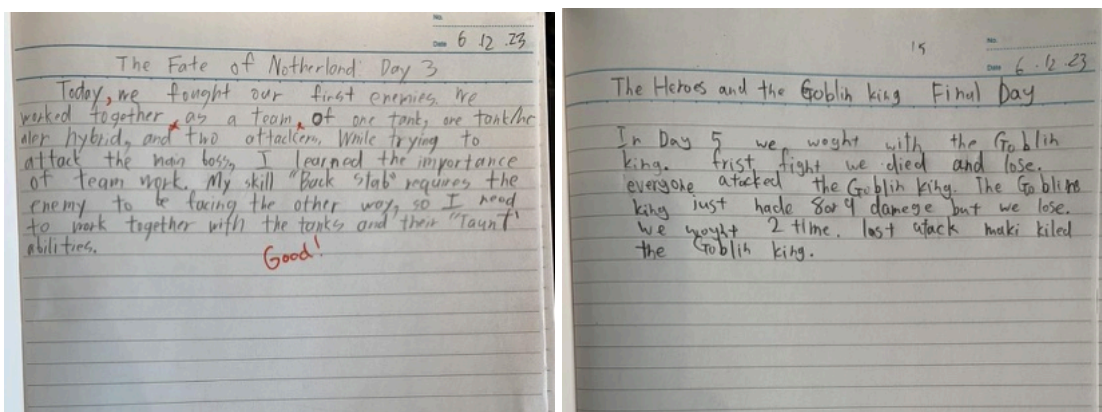 No.
Date 6 12 23
The Fate of Notherland: Day 3
Today, we fought our first enemies. We
worked together, as a team, of one tank, one tank/he
aler hybrid, and two attackers. While trying to
attack the main boss, I learned the importance
of team work. My skill "Back stab" requires the
enemy to be facing the other way, so I need
to work together with the tanks and their "Taunt"
abilities.
Good!
15
No.
Date 6.12.23
The Heroes and the Goblin king Final Day
In Day 5 we woght with the Goblin
king. frist fight we died and lose.
everyone atacked the Goblin king. The Goblins
king just hade 8or9 damege but we lose.
We woght 2 time. last atack maki kiled
the Goblin king.